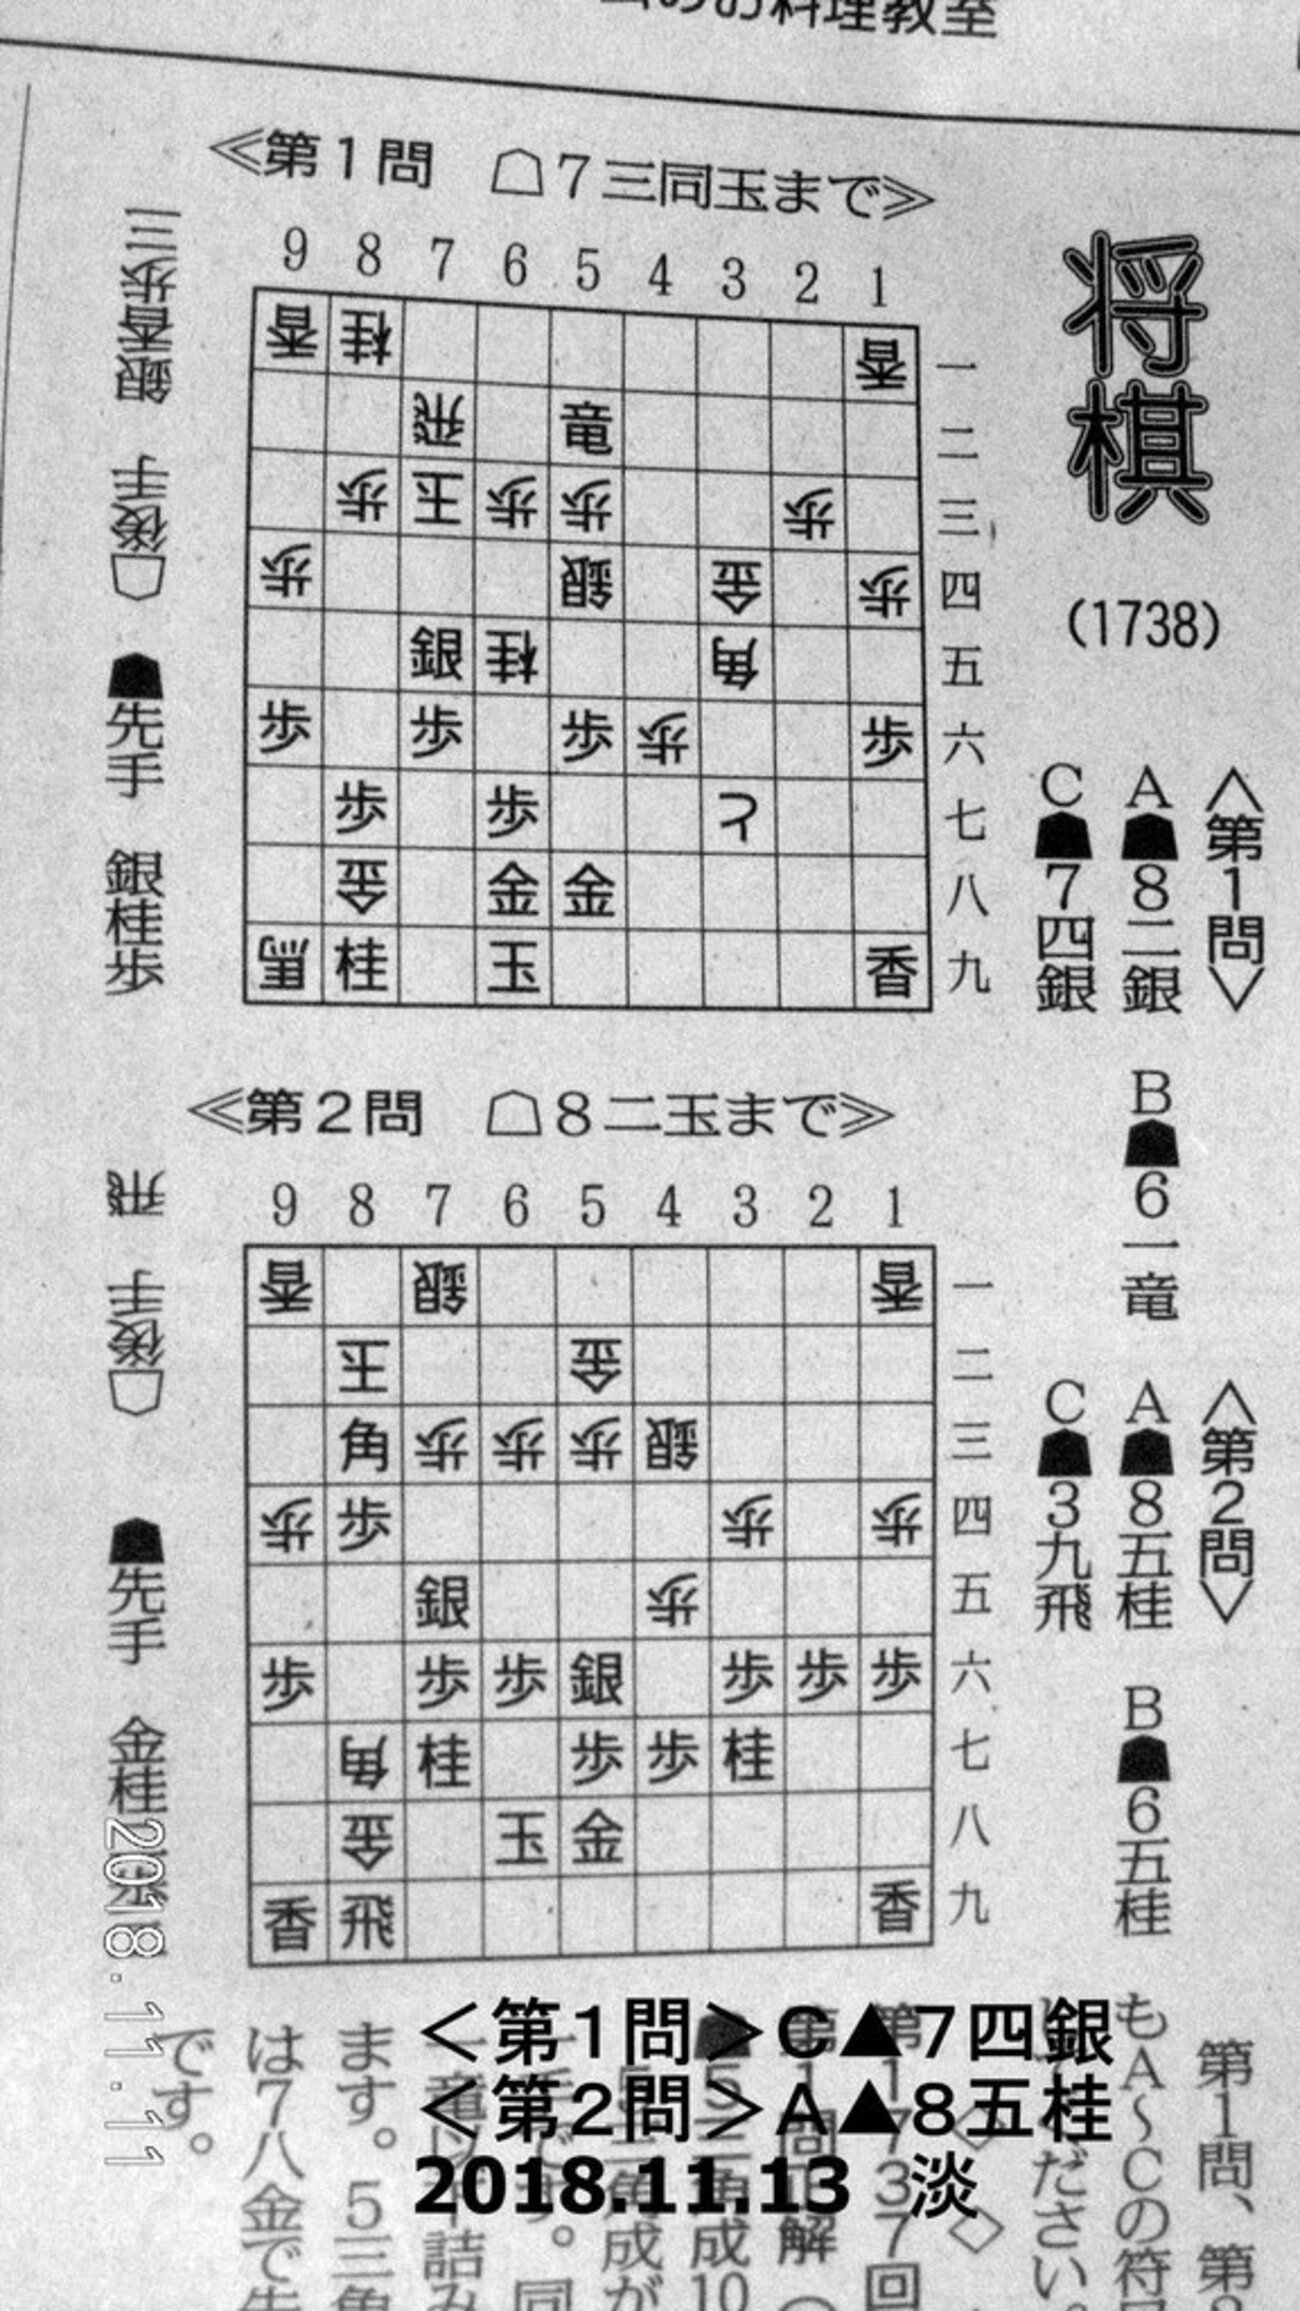 のお料理教室
将棋
(1738)
≪第1問 ☖7三同玉まで≫
9 8 7 6 5 4 3 2 1
香 桂 香 一
飛 竜 二
歩 王 歩 歩 歩 三
歩 銀 金 歩 四
銀 桂 角 五
歩 歩 歩 歩 歩 六
歩 歩 と 七
金 金 金 八
馬 桂 玉 香 九
☖後手 銀香歩三
☗先手 銀桂歩
<第1問>
A☗8二銀 B☗6一竜
C☗7四銀
≪第2問 ☖8二玉まで≫
9 8 7 6 5 4 3 2 1
香 銀 香 一
王 金 二
角 歩 歩 歩 銀 三
歩 歩 歩 歩 四
銀 歩 五
歩 歩 歩 銀 歩 歩 歩 六
角 桂 歩 歩 桂 七
金 玉 金 八
香 飛 香 九
☖後手 飛
☗先手 金桂
<第2問>
A☗8五桂 B☗6五桂
C☗3九飛
2018.11.11
第1問、第
もA〜Cの符
ださい。
ます。5三角
は7八金で先
です。
<第1問>C▲7四銀
<第2問>A▲8五桂
2018.11.13 淡